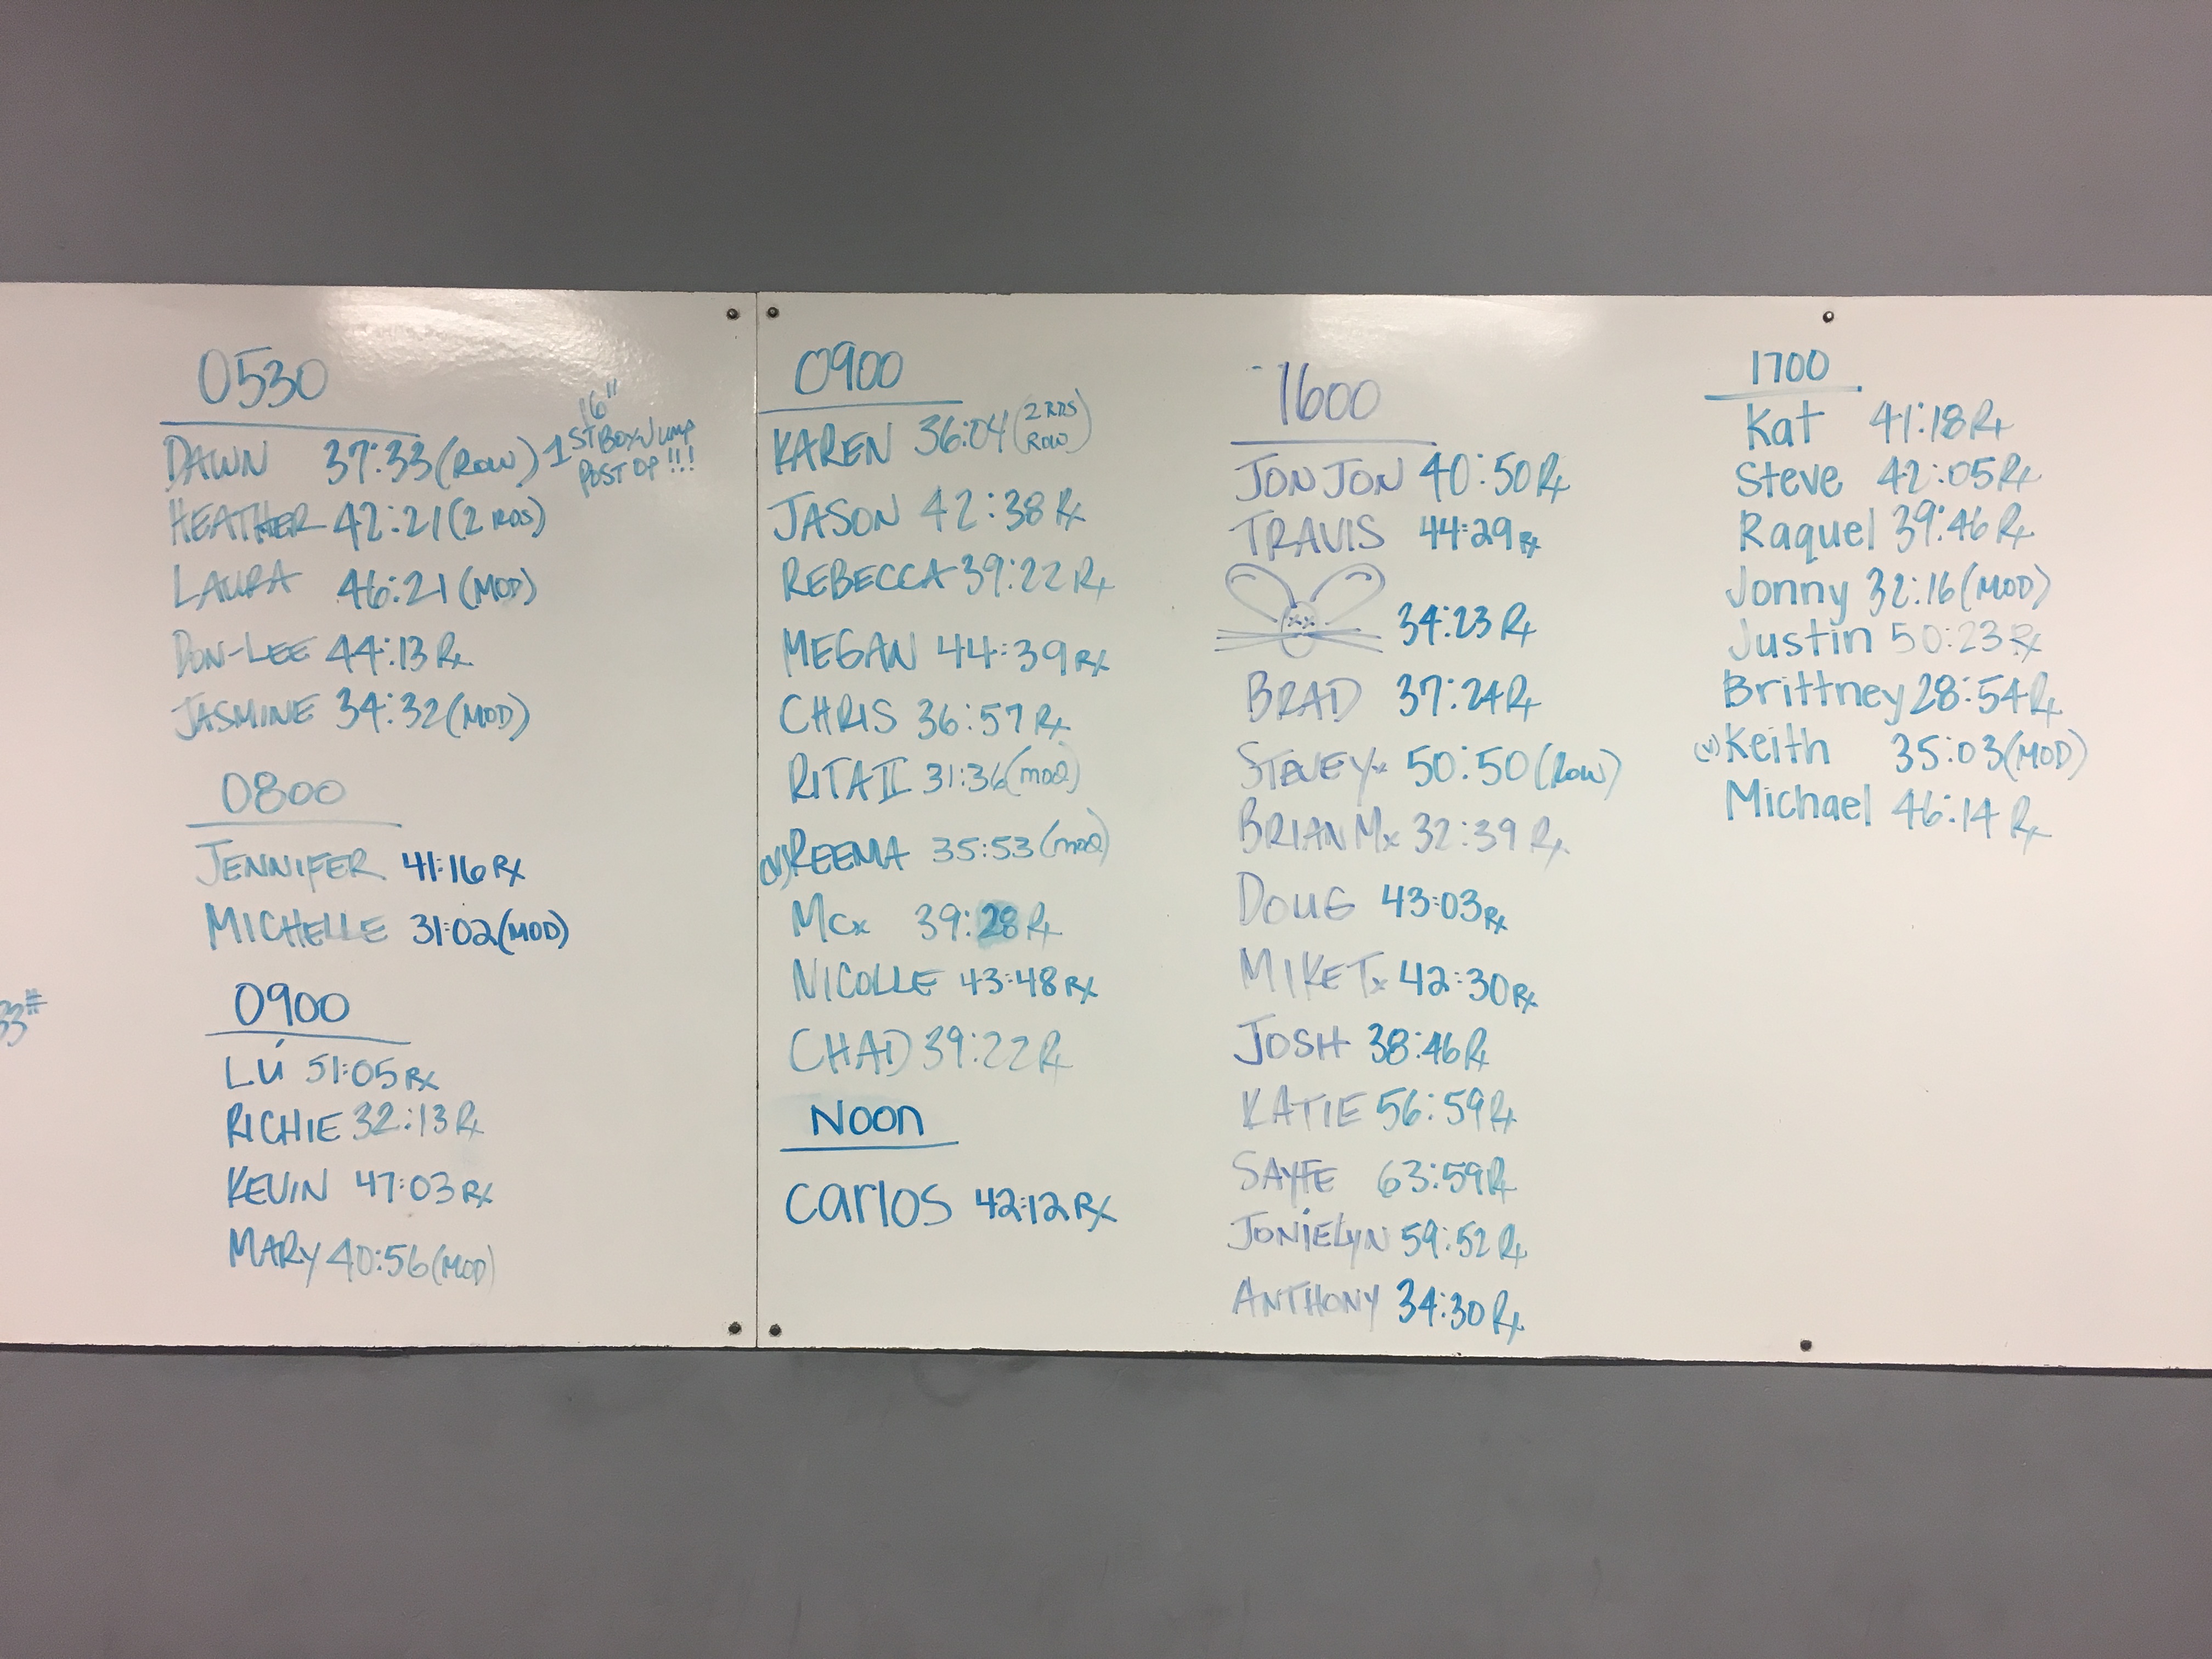 0530
DAWN 37:33 (ROW) 1ST 16" BOX JUMP
POST OP!!!
HEATHER 42:21 (2 RDS)
LAURA 46:21 (MOD)
DON-LEE 44:13 Rx
JASMINE 34:32 (MOD)
0800
JENNIFER 41:16 Rx
MICHELLE 31:02 (MOD)
0900
LÚ 51:05 Rx
RICHIE 32:13 Rx
KEVIN 47:03 Rx
MARY 40:56 (MOD)
33#
0900
KAREN 36:04 (2 RDS
ROW)
JASON 42:38 Rx
REBECCA 39:22 Rx
MEGAN 44:39 Rx
CHRIS 36:57 Rx
RITA II 31:36 (MOD)
(V) REEMA 35:53 (MOD)
MCx 39:28 Rx
NICOLLE 43:48 Rx
CHAD 39:22 Rx
NOON
Carlos 42:12 Rx
1600
JON JON 40:50 Rx
TRAVIS 44:29 Rx
34:23 Rx
BRAD 37:24 Rx
STEVEYx 50:50 (ROW)
BRIAN Mx 32:39 Rx
DOUG 43:03 Rx
MIKE Tx 42:30 Rx
JOSH 38:46 Rx
KATIE 56:59 Rx
SAYFE 63:59 Rx
JONIELYN 59:52 Rx
ANTHONY 34:30 Rx
1700
Kat 41:18 Rx
Steve 42:05 Rx
Raquel 39:46 Rx
Jonny 32:16 (MOD)
Justin 50:23 Rx
Brittney 28:54 Rx
(V) Keith 35:03 (MOD)
Michael 46:14 Rx